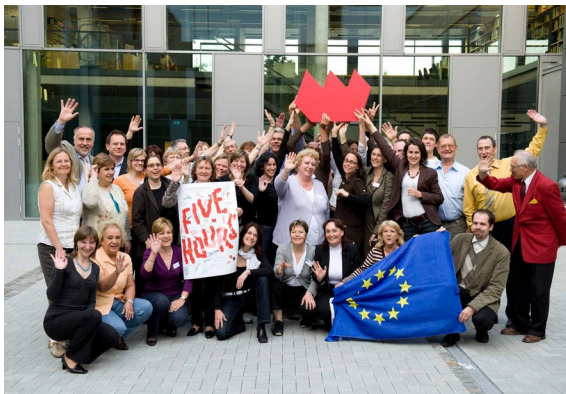 FIVE
HOURS